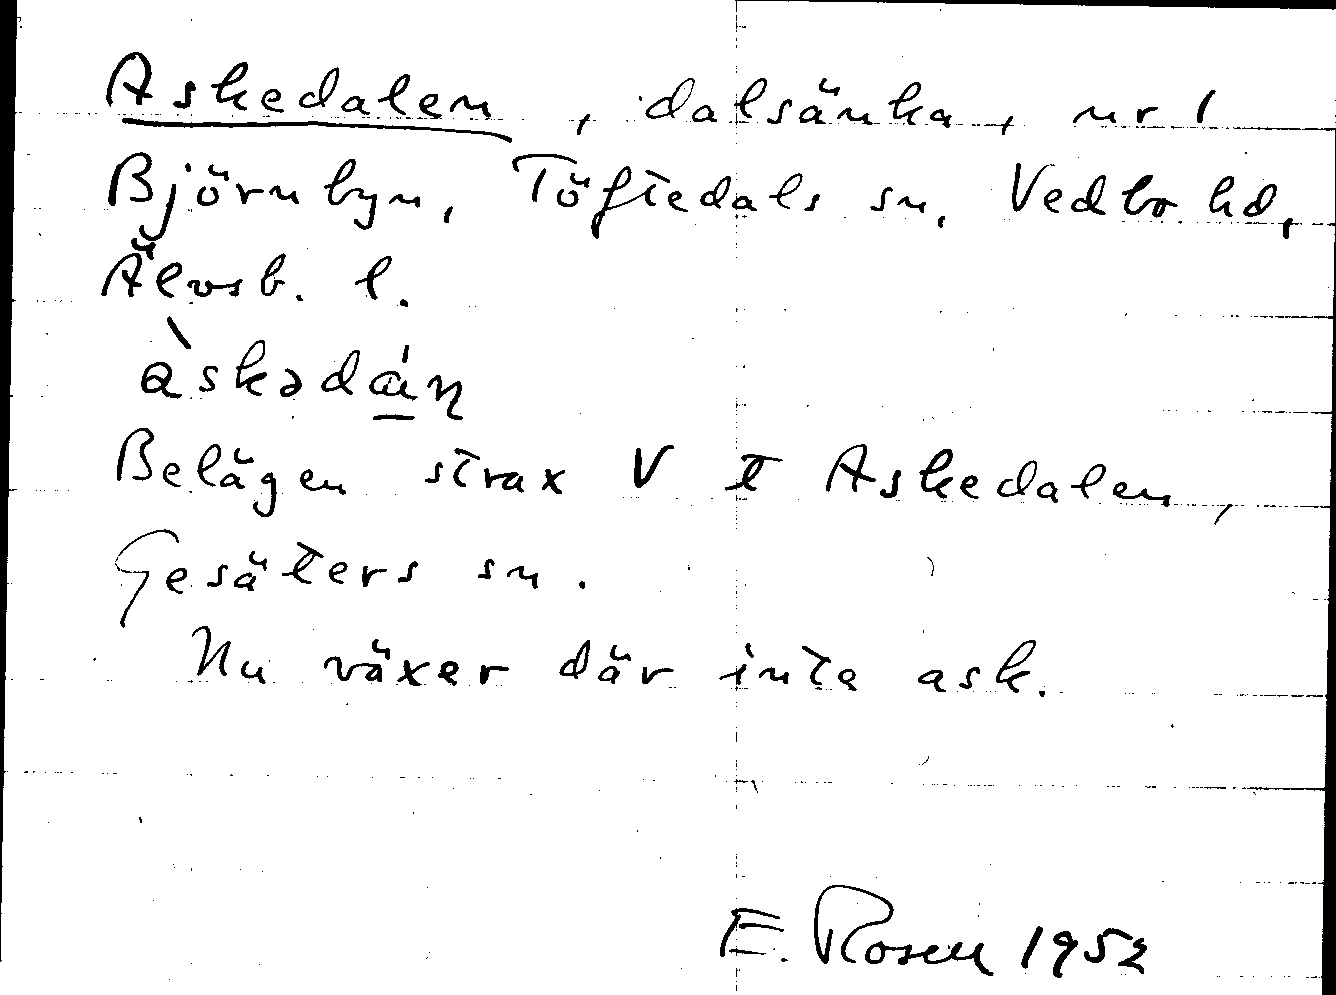 Askedalen, dalsänka, nr 1
Björnbyn, Töftedals sn, Vedbo hd,
Älvsb. l.
àskədán
Belägen strax V t Askedalen,
Gesäters sn.
Nu växer där inte ask.
E. Rosen 1952